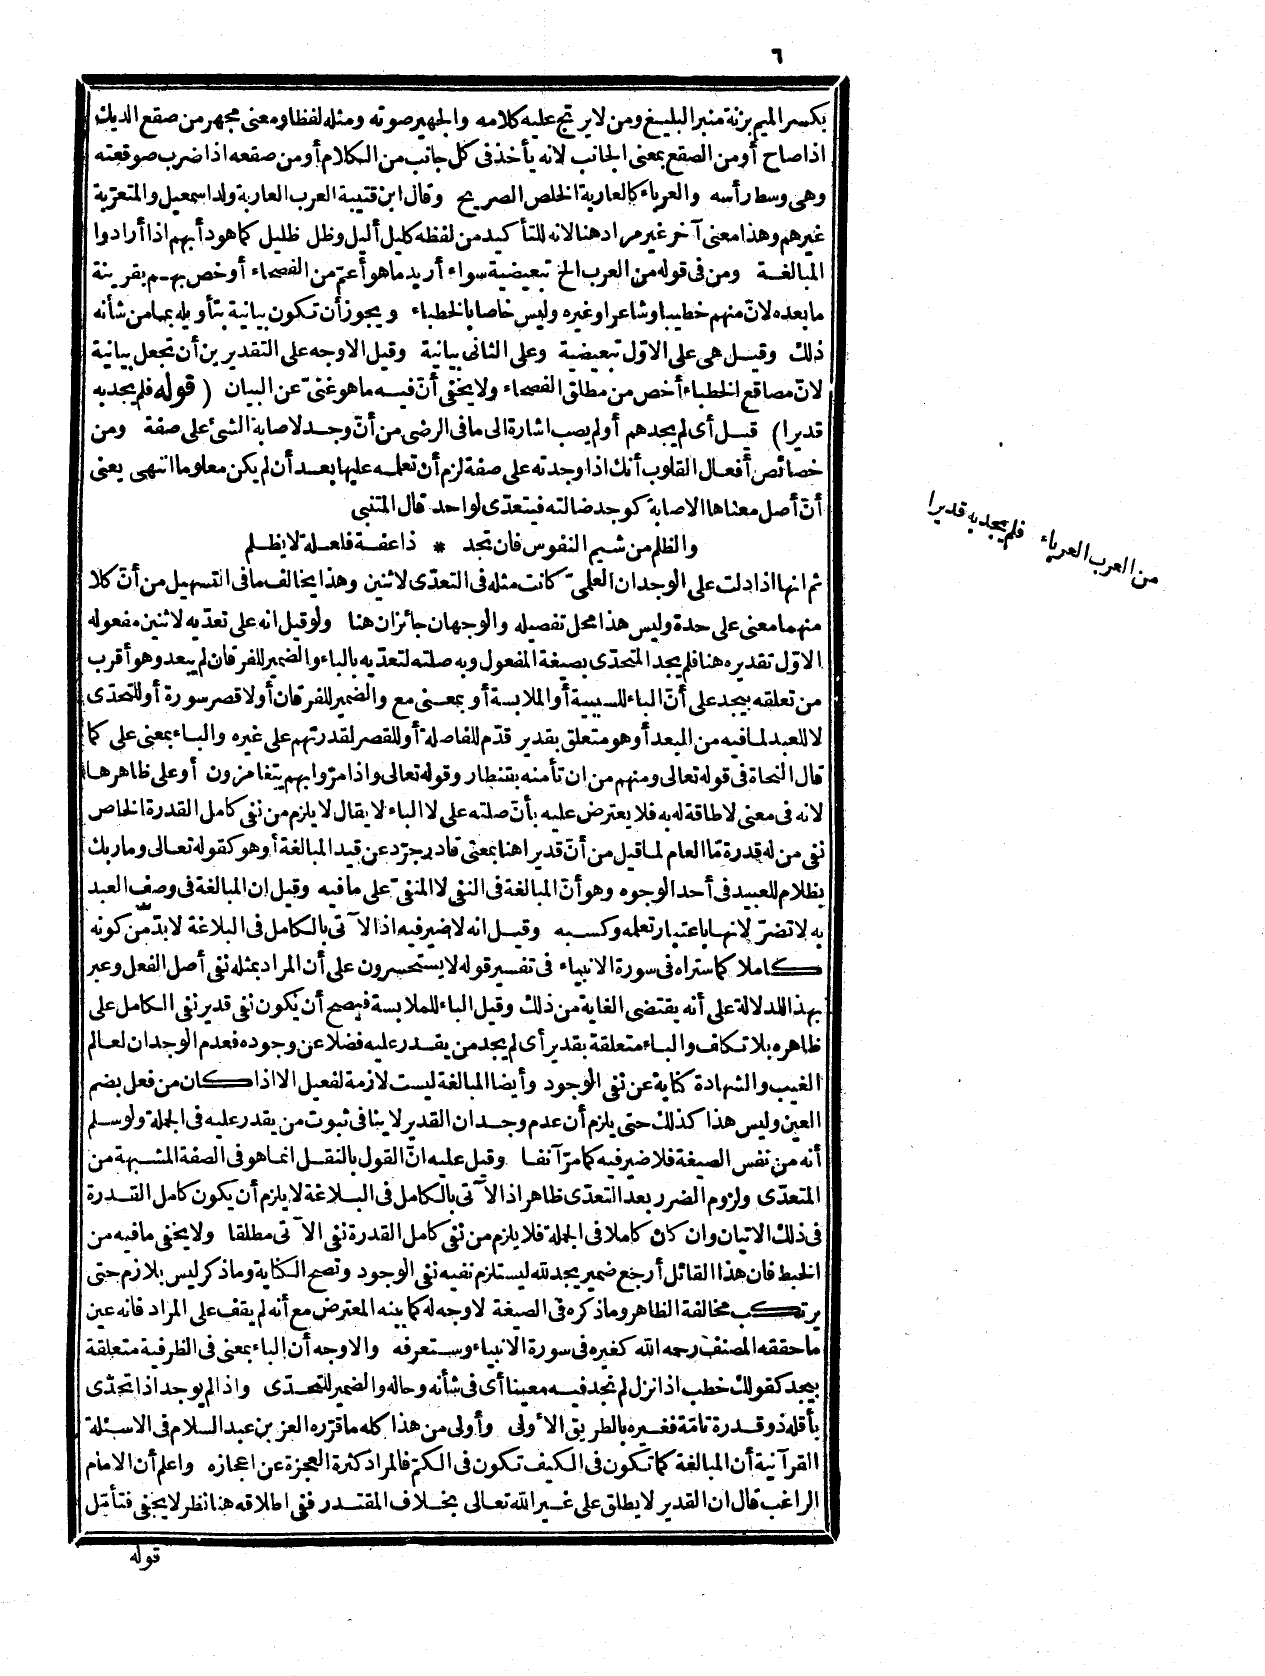 ٦
بكسر الميم بزنة منبر البليغ ومن لا يرتج عليه كلامه والجهير صوته ومثله لفظا ومعنى مجهر من صقع الديك
اذا صاح أو من الصقع بمعنى الجانب لانه يأخذ فى كل جانب من الكلام أو من صقعه اذا ضرب صوقعته
وهى وسط رأسه والعرباء كالعاربة الخلص الصريح وقال ابن قتيبة العرب العاربة ولد اسمعيل والمتعربة
غيرهم وهذا معنى آخر غير مراد هنا لانه للتأكيد من لفظه كليل أليل وظل ظليل كما هو دأبهم اذا أرادوا
المبالغة ومن فى قوله من العرب الخ تبعيضية سواء أريد ما هو أعم من الفصحاء أو خص بهم بقرينة
ما بعده لانّ منهم خطيبا وشاعرا وغيره وليس خاصا بالخطباء ويجوز أن تكون بيانية بتأويله بما من شأنه
ذلك وقيل هى على الاوّل تبعيضية وعلى الثانى بيانية وقيل الاوجه على التقديرين أن تجعل بيانية
لانّ مصاقع الخطباء أخص من مطلق الفصحاء ولا يخفى أنّ فيه ما هو غنىّ عن البيان (قوله فلم يجد به
قديرا) قيل أى لم يجدهم أو لم يصب اشارة الى ما فى الرضى من أنّ وجد لاصابة الشئ على صفة ومن
خصائص أفعال القلوب أنك اذا وجدته على صفة لزم أن تعلمه عليها بعد أن لم يكن معلوما انتهى يعنى
أنّ أصل معناها الاصابة كوجد ضالته فيتعدّى لواحد قال المتنبى
والظلم من شيم النفوس فان تجد * ذا عفة فلعلة لا يظلم
ثم انها اذا دلت على الوجدان العلمىّ كانت مثله فى التعدّى لاثنين وهذا يخالف ما فى التسهيل من أنّ كلا
منهما معنى على حدة وليس هذا محل تفصيله والوجهان جائزان هنا ولو قيل انه على تعدّيه لاثنين مفعوله
الاوّل تقديره هنا فلم يجد المتحدّى بصيغة المفعول وبه صلته لتعدّيه بالباء والضمير للفرقان لم يبعد وهو أقرب
من تعلقه بيجد على أنّ الباء للسببية أو الملابسة أو بمعنى مع والضمير للفرقان أو لا قصر سورة أو للتحدّى
لا للعبد لما فيه من البعد أو هو متعلق بقدير قدّم للفاصلة أو للقصر لقدرتهم على غيره والباء بمعنى على كما
قال النحاة فى قوله تعالى ومنهم من ان تأمنه بقنطار وقوله تعالى واذا مرّوا بهم يتغامزون أو على ظاهرها
لانه فى معنى لا طاقة له به فلا يعترض عليه بأنّ صلته على لا الباء لا يقال لا يلزم من نفى كامل القدرة الخاص
نفى من له قدرة مّا العام لما قيل من أنّ قديرا هنا بمعنى قادر جرّد عن قيد المبالغة أو هو كقوله تعالى وما ربك
بظلام للعبيد فى أحد الوجوه وهو أنّ المبالغة فى النفى لا المنفىّ على ما فيه وقيل ان المبالغة فى وصف العبد
به لا تضرّ لانها باعتبار تعلمه وكسبه وقيل انه لا ضير فيه اذ الآتى بالكامل فى البلاغة لا بدّ من كونه
كاملا كما ستراه فى سورة الانبياء فى تفسير قوله لا يستحسرون على أن المراد بمثله نفى أصل الفعل وعبر
بهذا للدلالة على أنه يقتضى الغاية من ذلك وقيل الباء للملابسة فيصح أن يكون نفى قدير نفى الكامل على
ظاهره بلا تكلف والباء متعلقة بقدير أى لم يجد من يقدر عليه فضلا عن وجوده فعدم الوجدان لعالم
الغيب والشهادة كناية عن نفى الوجود وأيضا المبالغة ليست لازمة لفعيل الا اذا كان من فعل بضم
العين وليس هذا كذلك حتى يلزم أن عدم وجدان القدير لا ينافى ثبوت من يقدر عليه فى الجملة ولو سلم
أنه من نفس الصيغة فلا ضير فيه كما مرّ آنفا وقيل عليه انّ القول بالنقل انما هو فى الصفة المشبهة من
المتعدّى ولزوم الضرر بعد التعدّى ظاهر اذ الآتى بالكامل فى البلاغة لا يلزم أن يكون كامل القدرة
فى ذلك الاتيان وان كان كاملا فى الجملة فلا يلزم من نفى كامل القدرة نفى الآتى مطلقا ولا يخفى ما فيه من
الخبط فان هذا القائل أرجع ضمير يجد لله ليستلزم نفيه نفى الوجود وتصح الكناية وما ذكر ليس بلازم حتى
يرتكب مخالفة الظاهر وما ذكره فى الصيغة لا وجه له كما بينه المعترض مع أنه لم يقف على المراد فانه عين
ما حققه المصنف رحمه الله كغيره فى سورة الانبياء وستعرفه والاوجه أن الباء بمعنى فى الظرفية متعلقة
بيجد كقولك خطب اذا نزل لم نجد فيه معينا أى فى شأنه وحاله والضمير للتحدّى واذا لم يوجد اذا تحدّى
بأقله ذو قدرة تامّة فغيره بالطريق الأولى وأولى من هذا كله ما قرّره العز بن عبد السلام فى الاسئلة
القرآنية أن المبالغة كما تكون فى الكيف تكون فى الكمّ فالمراد كثرة العجزة عن اعجازه واعلم أن الامام
الراغب قال ان القدير لا يطلق على غير الله تعالى بخلاف المقتدر ففى اطلاقه هنا نظر لا يخفى فتأمّل
قوله
من العرب العرباء فلم يجد به قديرا